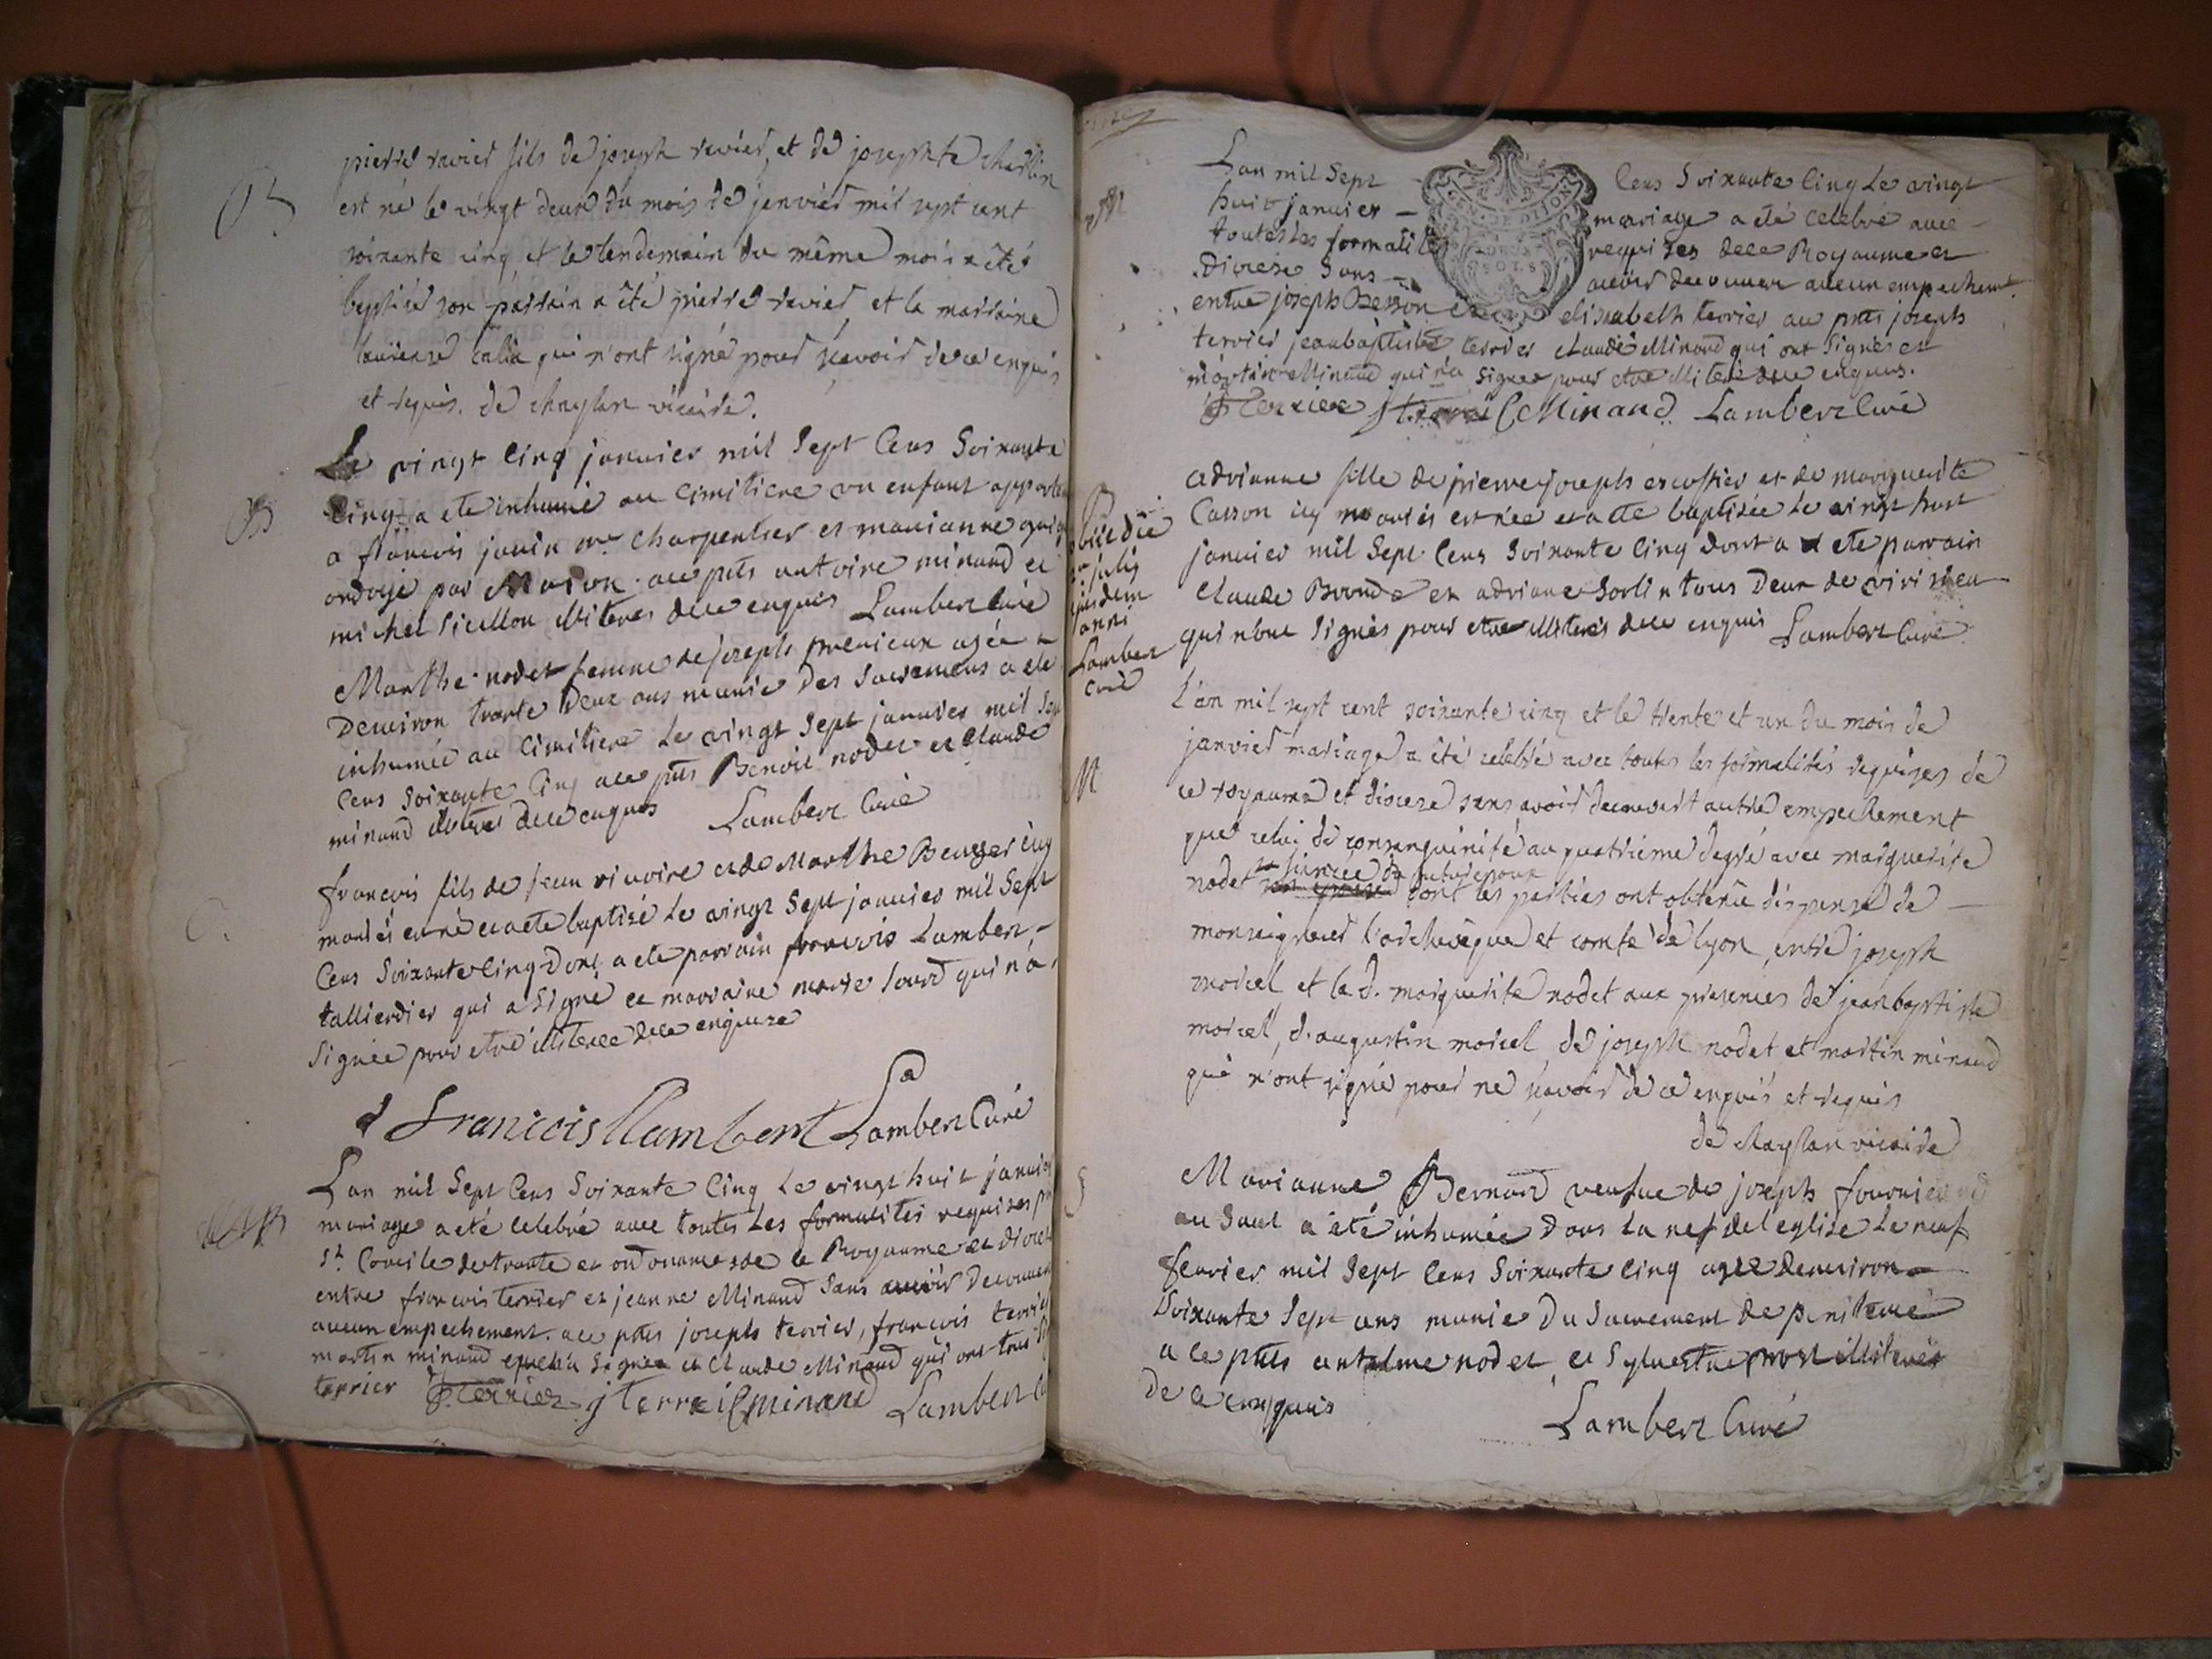 pierre ravier fils de joseph ravier, et de josephte
est né le vingt deux du mois de janvier mil sept cent
soixante cinq et le lendemain du même mois a été
baptisé son parrain a été pierre ravier et la marraine
qui n'ont signé pour sçavoir de ce enquis
et requis. de vicaire.
Le vingt cinq janvier mil Sept Cens Soixante
Cinq a ete inhumé au Cimitiere un enfant
a francois janin me Charpentier et marianne
ondoyé par Marion. ace pnts antoine minand et
michel illiteres de ce enquis Lambert Curé
Marthe nodet femme de joseph agée
Denviron trante Deux ans munie Des Sacremens a ete
inhumée au Cimitiere Le vingt Sept janvier mil Sept
Cens Soixante Cinq ace pnts Benoit nodet et Claude
minand illiteres de ce enquis Lambert Curé
francois fils de jean vivoire et de Marthe Berger
mariés est né et a ete baptisé Le vingt Sept janvier mil Sept
Cens Soixante Cinq Dont a ete parrain francois Lambert
tallierdier qui a Signé et marraine marie qui na
Signée pour etre illiteree de ce enquise
francois Lambert Lambert Curé
Lan mil Sept Cens Soixante Cinq Le vingt huit janvier
mariage a eté Celebré avec toutes Les formalités requises
St Concile de trante et ordonnances de Ce Royaume et
entre francois terrier et jeanne Minand Sans avoir Decouvert
aucun empechement. ace pnts joseph terrier, francois terrier
martin minand Signé et Claude Minand qui ont
terrier terrier j terrei C minand Lambert
Lan mil Sept Cens Soixante Cinq Le vingt
huit janvier mariage a eté Celebré avec
toutes Les formalités requises de ce Royaume et
Diocese Sans avoir decouvert aucun empechemt
entre joseph Besson et elisabeth terrier ace pnts joseph
terrier jean baptiste terrier Claude Minand qui ont Signés et
martin Minand qui na Signer pour etre illiteré de ce enquis.
terrier C Minand Lambert Curé
adrianne fille de pierre joseph escoffier et de marguerite
Casson mariés est née et a ete baptisée Le vingt huit
janvier mil Sept Cens Soixante Cinq dont a ete parrain
Claude et adriane Sorlin tous Deux de
qui nont Signés pour etre illiterés de ce enquis Lambert Curé
julii
ejusdem
anni
Lambert
curé
L'an mil sept cent soixante cinq et le trente et un du mois de
janvier mariage a été celebré avec toutes les formalités requises de
ce royaume et diocese sans avoir decouvert autre empechement
que celui de consanguinité au quatrieme degré avec marguerite
nodet dont les parties ont obtenu dispense de
monseigneur l'archeveque et comte de lyon, entre joseph
morcel et la d. marguerite nodet aux presences de jean baptiste
morcel, d'augustin morcel de joseph nodet et martin minand
qui n'ont signé pour ne sçavoir de ce enquis et requis
de vicaire
M
Marianne Bernard veufve de joseph fournier
au Saut a été inhumée Dans La nef de l eglise Le neuf
fevrier mil Sept Cens Soixante Cinq agée Denviron
Soixante Sept ans munie Du Sacrement de penitence
a ce pnts antelme nodet, et Sylvestre prost illiterés
de ce enquis
Lambert Curé